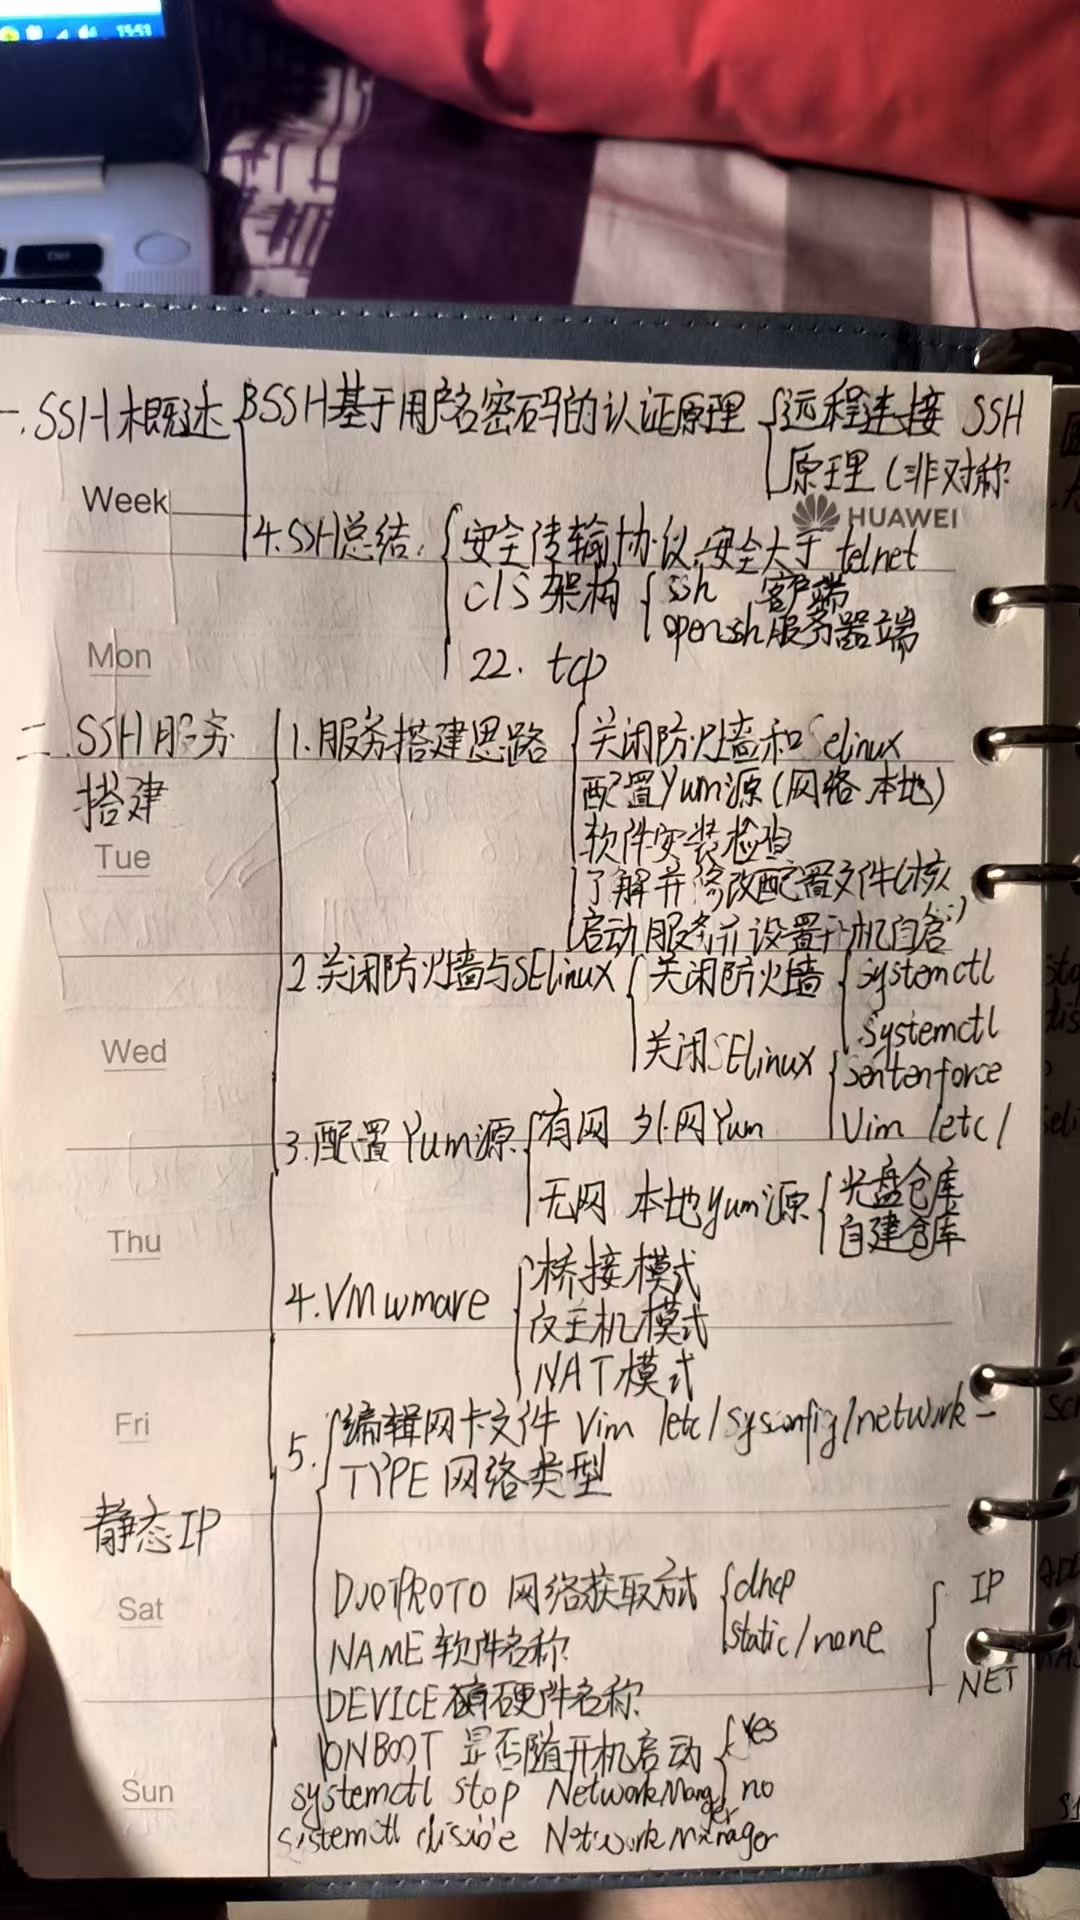 15:51
Ctrl
一.SSH概述
3SSH基于用户名密码的认证原理
远程连接 SSH
原理(非对称
Week
HUAWEI
4.SSH总结:
安全传输协议,安全大于telnet
C/S架构
ssh 客户端
openssh服务器端
22. tcp
Mon
二.SSH服务
搭建
1.服务搭建思路
关闭防火墙和Selinux
配置Yum源(网络 本地)
软件安装检查
了解并修改配置文件(核
心)
启动服务并设置开机自启
Tue
2.关闭防火墙与SElinux
关闭防火墙
systemctl
systemctl
关闭SElinux
sentenforce
Vim /etc/
Wed
3.配置Yum源
有网 外网Yum
无网 本地yum源
光盘仓库
自建仓库
Thu
4.VMwmare
桥接模式
仅主机模式
NAT模式
Fri
静态IP
5.
编辑网卡文件 Vim /etc/sysconfig/network-
TYPE 网络类型
Sat
网络获取方式
dhcp
static/none
IP
NET
NAME 软件名称
DEVICE 硬件名称
ONBOOT 是否随开机启动
yes
no
Sun
systemctl stop NetworkManger
sistemctl Networkmanager